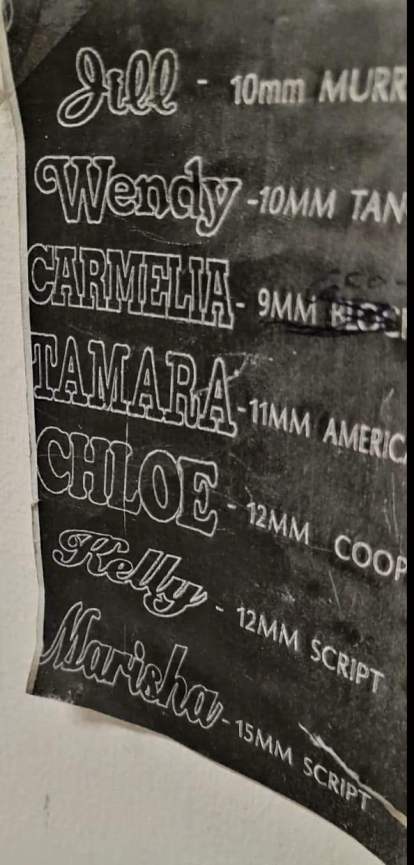 Jill - 10mm MURR
Wendy -10MM TAN
CARMELIA- 9MM
TAMARA-11MM AMERIC
CHLOE - 12MM COOP
Kelly - 12MM SCRIPT
Marisha-15MM SCRIPT